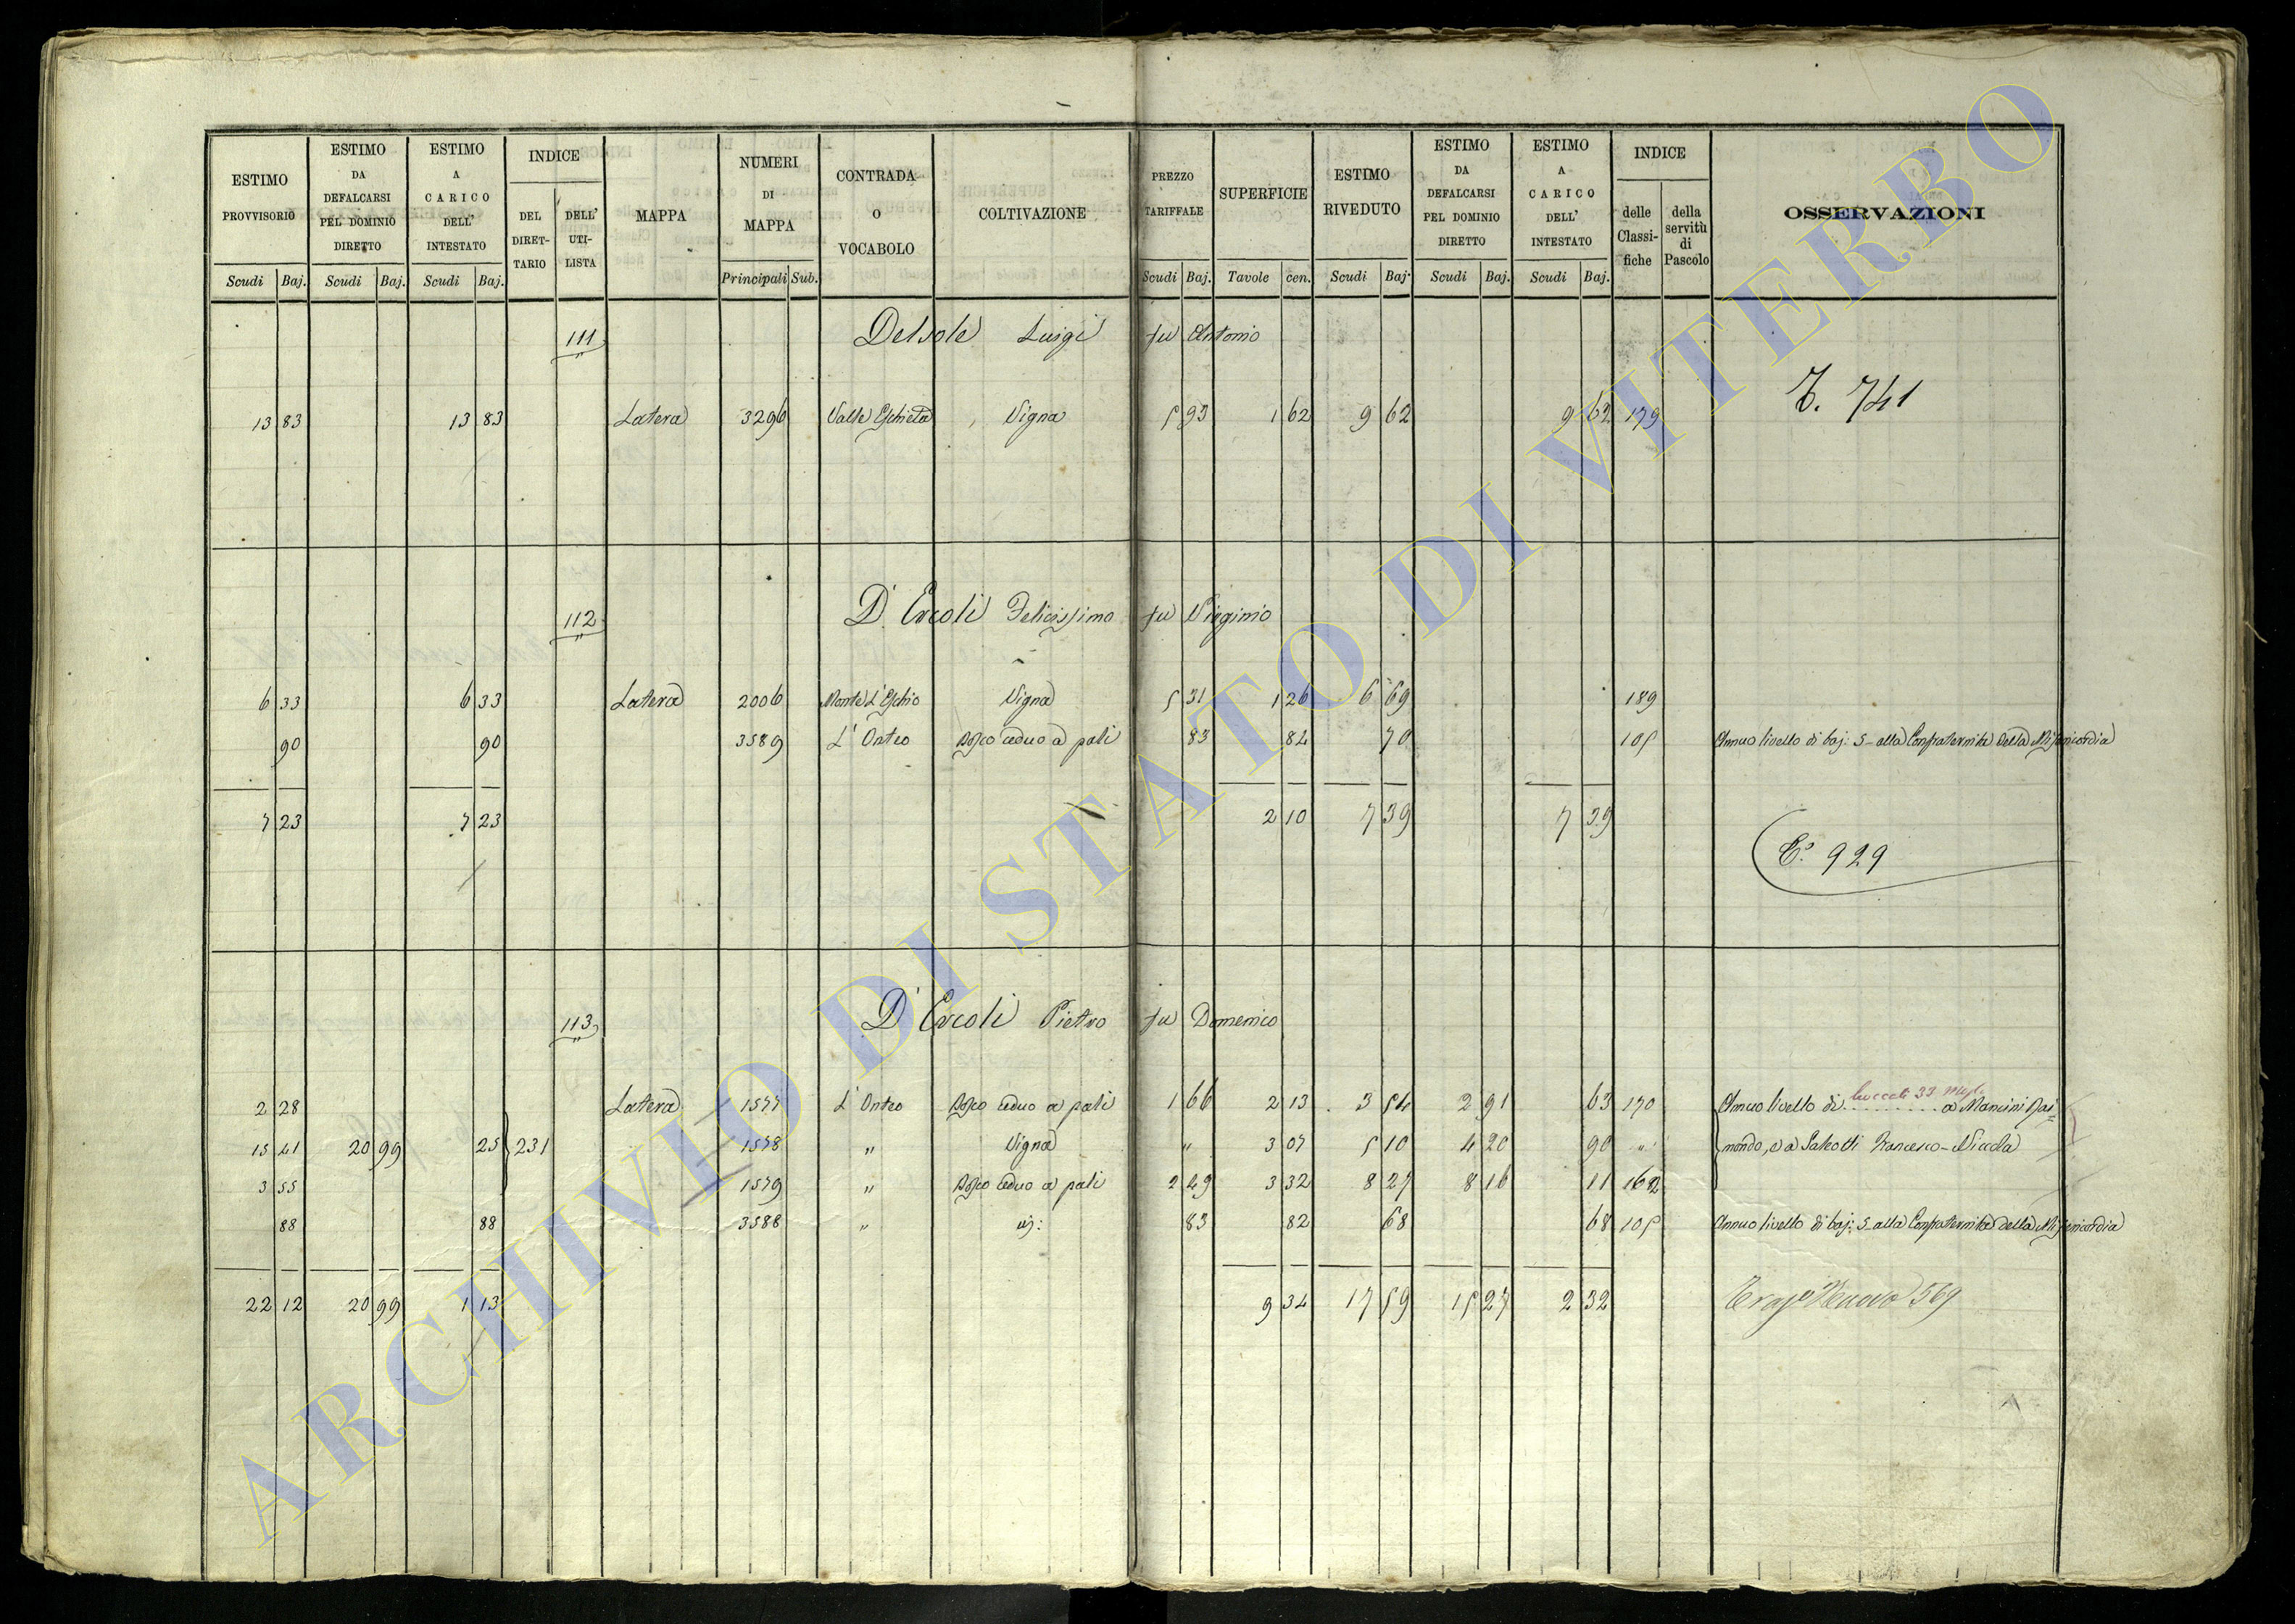 ESTIMO PROVVISORIO | ESTIMO DA DEFALCARSI PEL DOMINIO DIRETTO | ESTIMO A CARICO DELL' INTESTATO | INDICE | MAPPA | NUMERI DI MAPPA | CONTRADA O VOCABOLO | COLTIVAZIONE | PREZZO TARIFFALE | SUPERFICIE | ESTIMO RIVEDUTO | ESTIMO DA DEFALCARSI PEL DOMINIO DIRETTO | ESTIMO A CARICO DELL' INTESTATO | INDICE | OSSERVAZIONI
DEL DIRETTARIO | DELL' UTILISTA | delle Classifiche | della servitù di Pascolo
Scudi | Baj. | Scudi | Baj. | Scudi | Baj. | Principali | Sub. | Scudi | Baj. | Tavole | cen. | Scudi | Baj. | Scudi | Baj. | Scudi | Baj.
111 Delsole Luigi fu Antonio
T. 741
13 83 | 13 83 | Latera | 3296 | Valle Eschieta | Vigna | 5 93 | 1 62 | 9 62 | 9 62 | 179
112 D'Ercoli Felicissimo fu Virginio
6 33 | 6 33 | Latera | 2006 | Monte L'Eschio | Vigna | 5 31 | 1 26 | 6 69 | 189
90 | 90 | 3589 | L'Onteo | Bosco ceduo a pali | 83 | 84 | 70 | 105 | Annuo livello di baj: 5 alla Confraternita della Misericordia
7 23 | 7 23 | 2 10 | 7 39 | 7 39
T.° 929
113 D'Ercoli Pietro fu Domenico
2 28 | Latera | 1577 | L'Onteo | Bosco ceduo a pali | 1 66 | 2 13 | 3 54 | 2 91 | 63 | 170 | Annuo livello di .......... a Mancini Rai=
15 41 | 20 99 | 25 | 231 | 1578 | " | Vigna | " | 3 07 | 5 10 | 4 20 | 90 | " | mondo, e a Galeotti Francesco-Nicola
3 55 | 1579 | " | Bosco ceduo a pali | 2 49 | 3 32 | 8 27 | 8 16 | 11 | 162
88 | 88 | 3588 | " | id: | 83 | 82 | 68 | 68 | 105 | Annuo livello di baj: 5 alla Confraternita della Misericordia
22 12 | 20 99 | 1 13 | 9 34 | 17 59 | 15 27 | 2 32 | Nuovo 569
ARCHIVIO DI STATO DI VITERBO